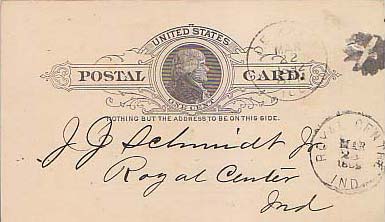 UNITED STATES
POSTAL CARD.
ONE CENT
NOTHING BUT THE ADDRESS TO BE ON THIS SIDE.
J J Schmidt Jr
Royal Center
Ind
22
ROYAL CENTRE
MAR
IND.